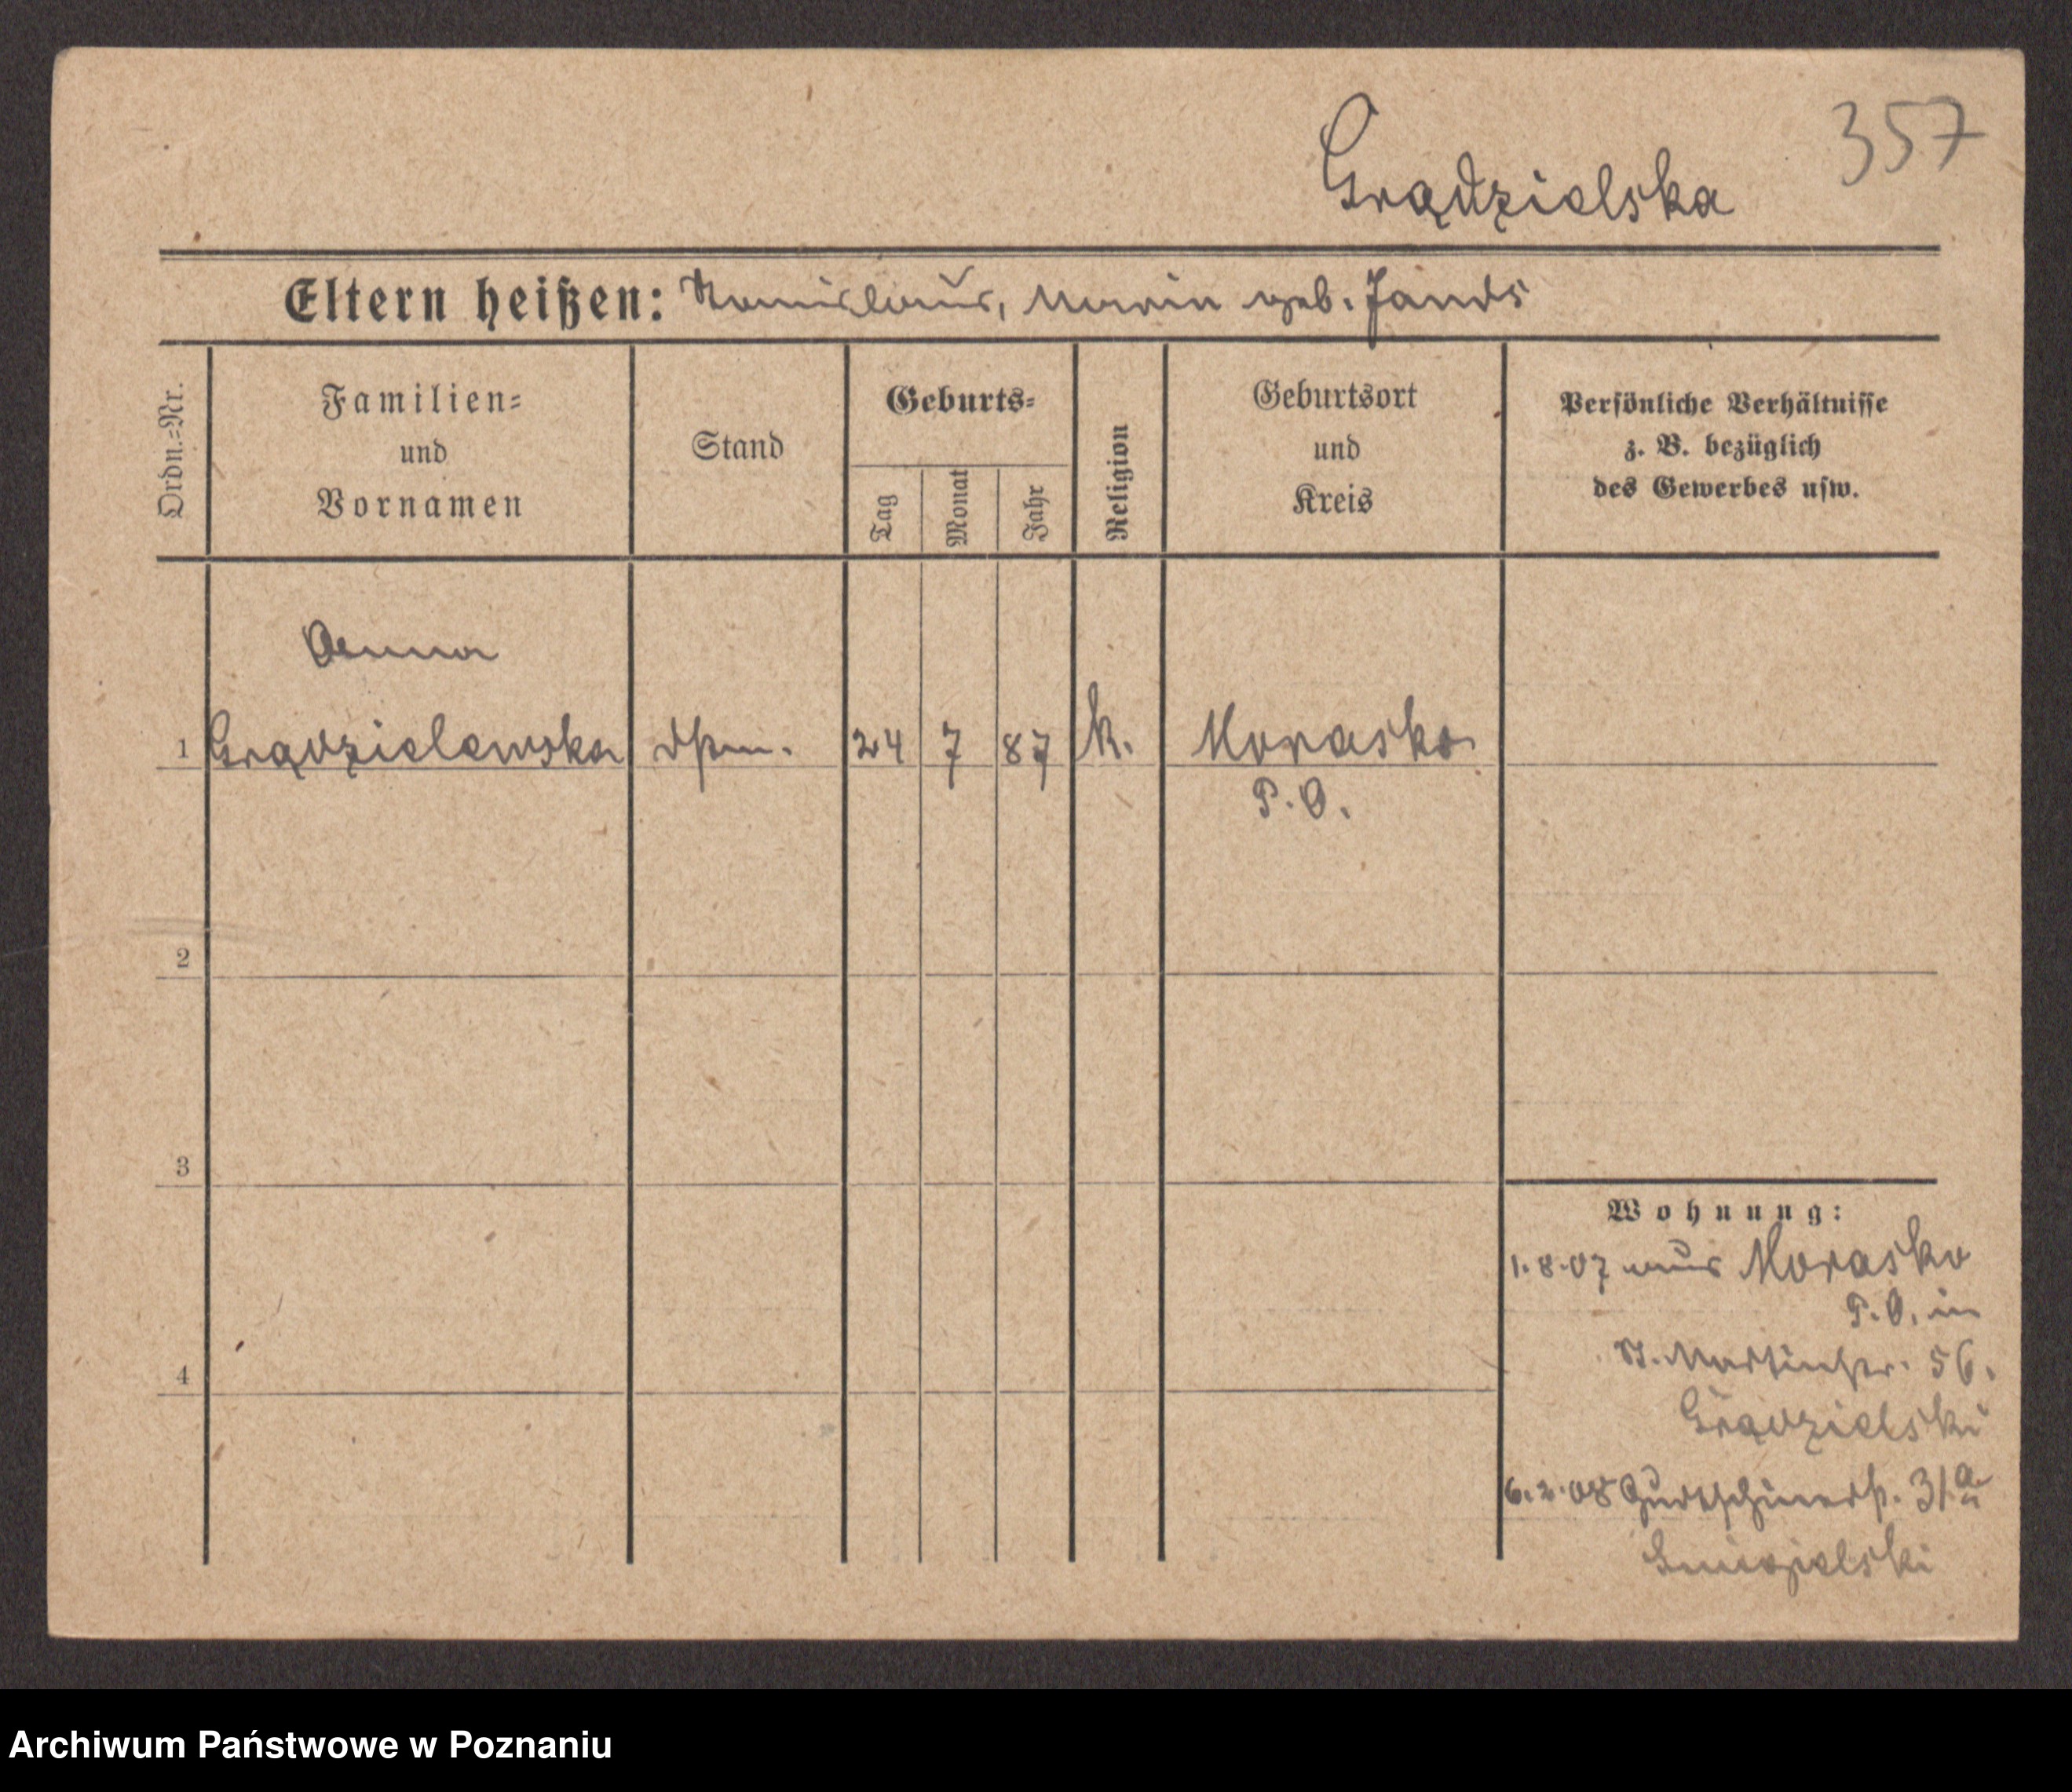 357
Grądzielska
Eltern heißen: Stanislaus, Maria geb. Jands
Ordn.=Nr.
Familien=
und
Vornamen
Stand
Geburts=
Tag
Monat
Jahr
Religion
Geburtsort
und
Kreis
Persönliche Verhältnisse
z. B. bezüglich
des Gewerbes usw.
Anna
1 Grądzielewska Dstm. 24 7 87 k. Morasko
P. O.
2
3
4
Wohnung:
1.8.07 aus Morasko
P. O. in
St. Martinstr. 56.
Grądzielski
6.2.08 31a
Archiwum Państwowe w Poznaniu